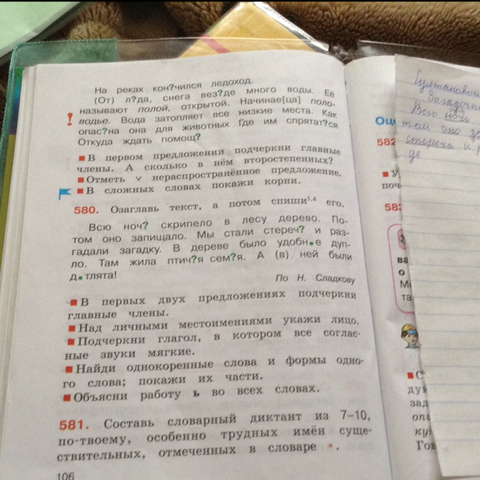 На реках кон?чился ледоход.
(От) л?да, снега вез?де много воды. Её
называют полой, открытой. Начинае[ца] поло-
водье. Вода затопляет все низкие места. Как
опас?на она для животных Где им спрятат?ся
Откуда ждать помощ?
■ В первом предложении подчеркни главные
члены. А сколько в нём второстепенных?
■ Отметь v нераспространённое предложение.
■ В сложных словах покажи корни.
580. Озаглавь текст, а потом спиши1,4 его.
Всю ноч? скрипело в лесу дерево. По-
том оно запищало. Мы стали стереч? и раз-
гадали загадку. В дереве было удобн•е дуп-
ло. Там жила птич?я сем?я. А (в) ней были
д•тлята!
По Н. Сладкову
■ В первых двух предложениях подчеркни
главные члены.
■ Над личными местоимениями укажи лицо.
■ Подчеркни глагол, в котором все соглас-
ные звуки мягкие.
■ Найди однокоренные слова и формы одно-
го слова; покажи их части.
■ Объясни работу ь во всех словах.
581. Составь словарный диктант из 7–10,
по-твоему, особенно трудных имён суще-
ствительных, отмеченных в словаре •.
106
582
Всю ночь